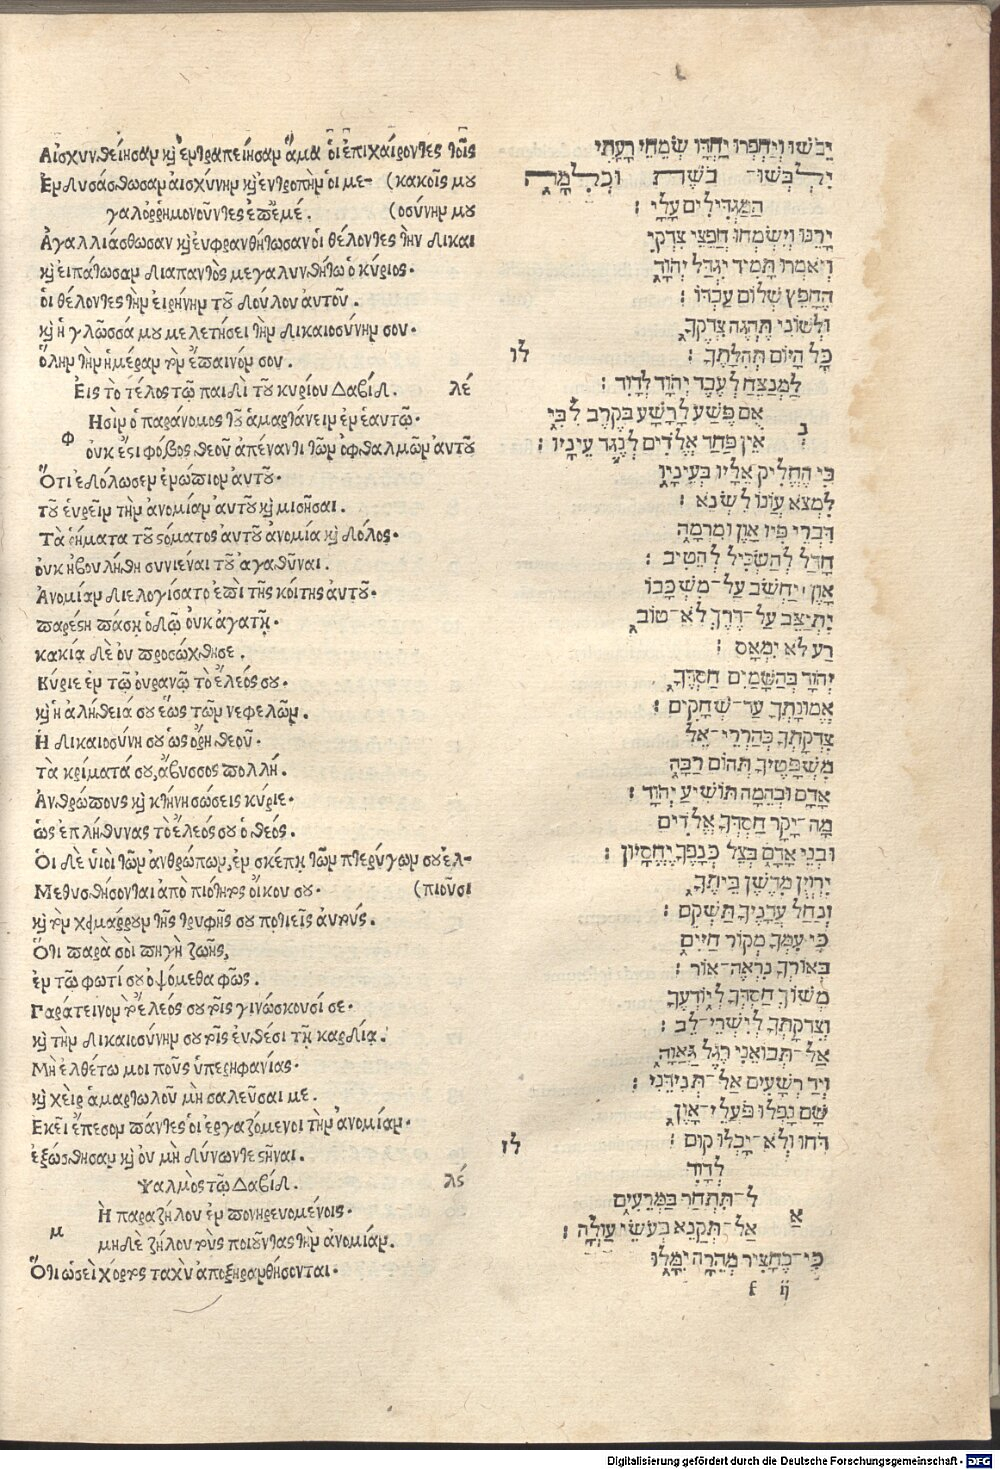 Αἰσχυνθείησαν κὶ ἐντραπείησαν ἅμα ὁι ἐπιχαίροντες τοῖς
Ενδυσάσθωσαν αισχύνην κὶ ἐντροπὴν ὁι με- (κακοῖς μου
γαλοῤῥημονοῦντες ἐπ' ἐμέ. (οσύνην μου
Αγαλλιάσθωσαν κὶ ευφρανθήτωσαν ὁι θέλοντες τὴν δικαι
κὶ ειπάτωσαν διαπαντὸς μεγαλυνθήτω ὁ κύριος·
ὁι θέλοντες τὴν ειρήνην τοῦ δούλου ἀυτοῦ.
κὶ ἡ γλῶσσά μου μελετήσει τὴν δικαιοσύνην σου·
ὅλην τὴν ἡμέραν τὸν ἔπαινόν σου.
Εις τὸ τέλος τῷ παιδὶ τοῦ κυρίου Δαβίδ. λέ
Φησὶν ὁ παράνομος τοῦ ἁμαρτάνειν ἐν ἑαυτῷ·
ὀυκ ἔστι φόβος θεοῦ ἀπέναντι τῶν ὀφθαλμῶν ἀυτοῦ
Ὅτι ἐδόλωσεν ἐνώπιον ἀυτοῦ·
τοῦ ἑυρεῖν τὴν ἀνομίαν ἀυτοῦ κὶ μισῆσαι.
Τὰ ῥήματα τοῦ στόματος ἀυτοῦ ἀνομία κὶ δόλος·
ὀυκ ἠβουλήθη συνιέναι τοῦ ἀγαθῦναι.
Ἀνομίαν διελογίσατο ἐπὶ τῆς κοίτης ἀυτοῦ·
παρέστη πάσῃ ὁδῷ ὀυκ ἀγατῇ·
κακίᾳ δὲ ὀυ προσώχθησε.
Κύριε ἐν τῷ ὀυρανῷ τὸ ἔλεός σου·
κὶ ἡ ἀλήθειά σου ἕως τῶν νεφελῶν.
Ἡ δικαιοσύνη σου ὡς ὄρη θεοῦ·
τὰ κρίματά σου, ἄβυσσος πολλή.
Ἀνθρώπους κὶ κτήνη σώσεις κύριε·
ὡς ἐπλήθυνας τὸ ἔλεός σου ὁ θεός.
Ὁι δὲ ὑιοὶ τῶν ἀνθρώπων, ἐν σκέπῃ τῶν πτερύγων σου ἐλ-
Μεθυσθήσονται ἀπὸ πιότητος ὄικου σου· (πιοῦσι
κὶ τὸν χειμάῤῥουν τῆς τρυφῆς σου ποτιεῖς ἀυτούς.
Ὅτι παρὰ σοὶ πηγὴ ζωῆς,
ἐν τῷ φωτί σου ὀψόμεθα φῶς.
Παράτεινον τὸ ἔλεός σου τοῖς γινώσκουσί σε·
κὶ τὴν δικαιοσύνην σου τοῖς ἐυθέσι τῇ καρδίᾳ.
Μὴ ἐλθέτω μοι ποῦς ὑπερηφανίας·
κὶ χεὶρ ἁμαρτωλοῦ μὴ σαλεῦσαι με.
Εκεῖ ἔπεσον πάντες ὁι ἐργαζόμενοι τὴν ἀνομίαν·
ἐξώσθησαν κὶ ὀυ μὴ δύνωντε στῆναι.
Ψαλμὸς τῷ Δαβίδ. λϛ
Μὴ παραζήλου ἐν πονηρευομένοις·
μηδὲ ζήλου τοὺς ποιοῦντας τὴν ἀνομίαν.
Ὅτι ὡσεὶ χόρτος ταχὺ ἀποξηρανθήσονται·
יֵבֹשׁוּ וְיַחְפְּרוּ יַחְדָּו שְׂמֵחֵי רָעָתִי
יִלְבְּשׁוּ־ בֹשֶׁת וּכְלִמָּה
הַמַּגְדִּילִים עָלָי :
יָרֹנּוּ וְיִשְׂמְחוּ חֲפֵצֵי צִדְקִי
וְיֹאמְרוּ תָמִיד יִגְדַּל יְהוָה
הֶחָפֵץ שְׁלוֹם עַבְדּוֹ :
וּלְשׁוֹנִי תֶּהְגֶּה צִדְקֶךָ
כָּל הַיּוֹם תְּהִלָּתֶךָ : לו
לַמְנַצֵּחַ לְעֶבֶד יְהוָה לְדָוִד :
נְאֻם פֶּשַׁע לָרָשָׁע בְּקֶרֶב לִבִּי
אֵין פַּחַד אֱלֹהִים לְנֶגֶד עֵינָיו :
כִּי הֶחֱלִיק אֵלָיו בְּעֵינָיו
לִמְצֹא עֲוֹנוֹ לִשְׂנֹא :
דִּבְרֵי פִיו אָוֶן וּמִרְמָה
חָדַל לְהַשְׂכִּיל לְהֵטִיב :
אָוֶן יַחְשֹׁב עַל־מִשְׁכָּבוֹ
יִתְיַצֵּב עַל־דֶּרֶךְ לֹא־טוֹב
רָע לֹא יִמְאָס :
יְהוָה בְּהַשָּׁמַיִם חַסְדֶּךָ
אֱמוּנָתְךָ עַד־שְׁחָקִים :
צִדְקָתְךָ כְּהַרְרֵי־אֵל
מִשְׁפָּטֶיךָ תְּהוֹם רַבָּה
אָדָם וּבְהֵמָה תוֹשִׁיעַ יְהוָה :
מַה־יָּקָר חַסְדְּךָ אֱלֹהִים
וּבְנֵי אָדָם בְּצֵל כְּנָפֶיךָ יֶחֱסָיוּן :
יִרְוְיֻן מִדֶּשֶׁן בֵּיתֶךָ
וְנַחַל עֲדָנֶיךָ תַשְׁקֵם :
כִּי־עִמְּךָ מְקוֹר חַיִּים
בְּאוֹרְךָ נִרְאֶה־אוֹר :
מְשׁוֹךְ חַסְדְּךָ לְיֹדְעֶיךָ
וְצִדְקָתְךָ לְיִשְׁרֵי־לֵב :
אַל־תְּבוֹאֵנִי רֶגֶל גַּאֲוָה
וְיַד רְשָׁעִים אַל־תְּנִדֵנִי :
שָׁם נָפְלוּ פֹּעֲלֵי־אָוֶן
דֹּחוּ וְלֹא־יָכְלוּ קוּם : לז
לְדָוִד
אַל־תִּתְחַר בַּמְּרֵעִים
אַל־תְּקַנֵּא בְּעֹשֵׂי עַוְלָה :
כִּי־כֶחָצִיר מְהֵרָה יִמָּלוּ
f ij
Digitalisierung gefördert durch die Deutsche Forschungsgemeinschaft - DFG